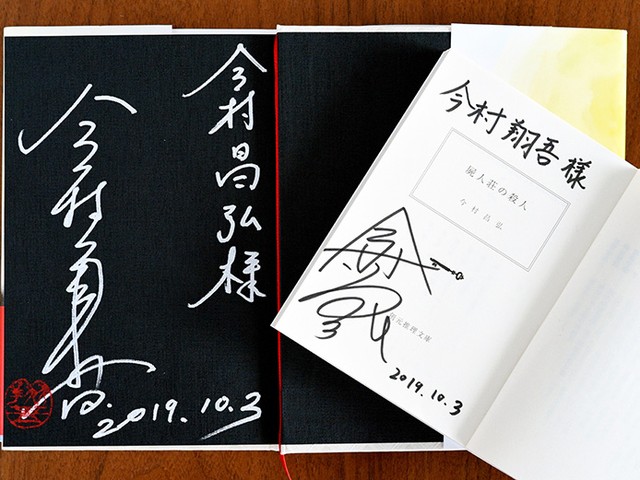 今村昌弘様
今村翔吾
2019.10.3
今村翔吾様
屍人荘の殺人
今村昌弘
創元推理文庫
2019.10.3